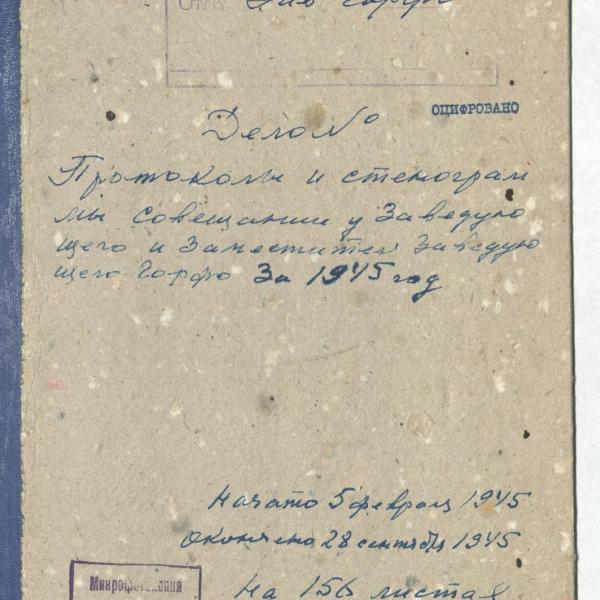 Горфо
ОЦИФРОВАНО
Дело №
Протоколы и стенограм
мы совещании у Заведую
щего и Заместителя Заведую
щего Горфо За 1945 год
Начато 5 февраля 1945
Окончено 28 сентября 1945
Микрофотокопия
На 156 листах